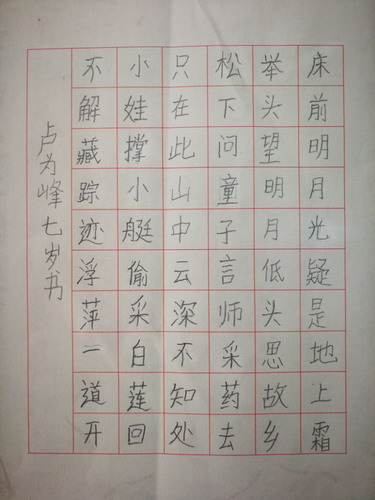 床前明月光疑是地上霜
举头望明月低头思故乡
松下问童子言师采药去
只在此山中云深不知处
小娃撑小艇偷采白莲回
不解藏踪迹浮萍一道开
卢为峰七岁书